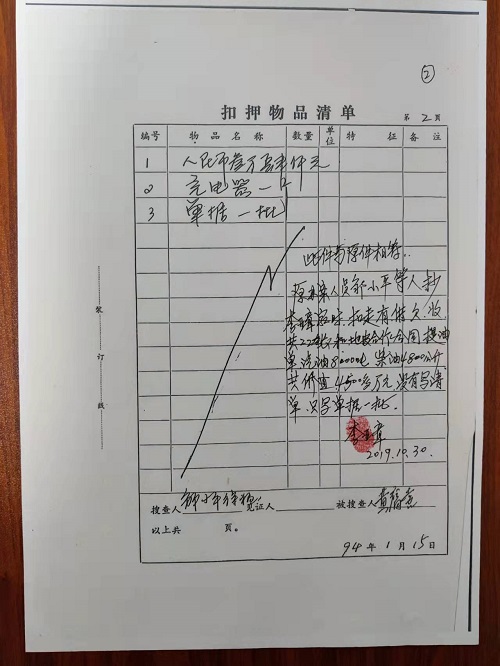 ②
扣押物品清单
第 2 页
编号 物品名称 数量 单位 特征 备注
1 人民币叁万 仟元
2 充电器一个
3 单据一批
此件与原件相符.
原办案人员 小平等人抄
李 家时.扣走有借欠.收
共22张和地皮合作合同.提油
单汽油8000 柴油4800公斤
共价值4500多万元.没有写清
单.只写单据一批.
李 章
2019.10.30.
搜查人 见证人 被搜查人 黄
以上共 页。
94 年 1 月 15 日
装 订 线